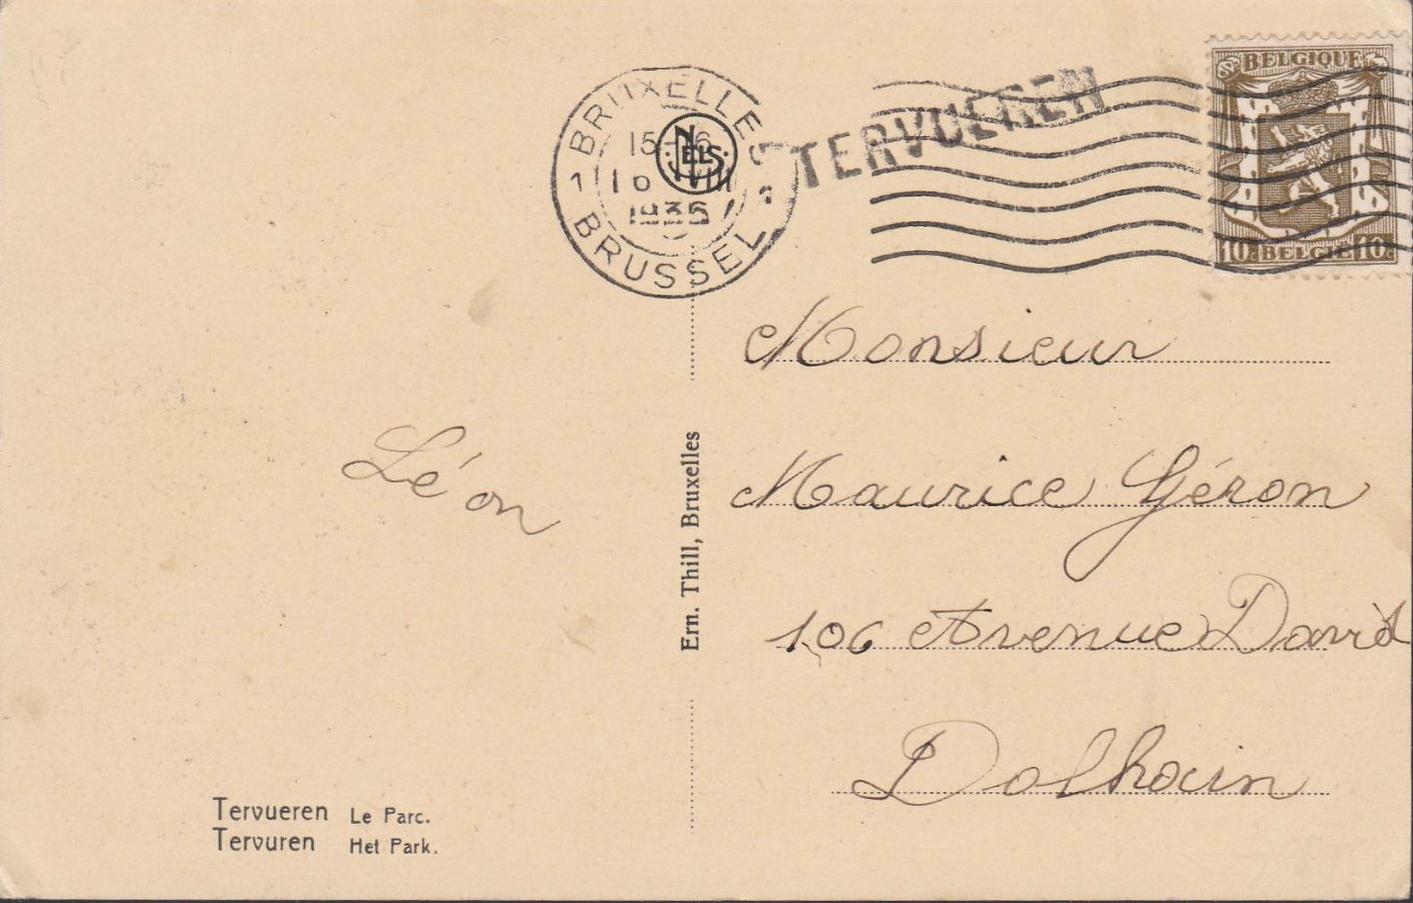 BRUXELLES
1 1
15-16
VIII
BRUSSEL
NELS
TERVUEREN
BELGIQUE
10c BELGIË 10c
Monsieur
Maurice Géron
106 Avenue David
Dolhain
Léon
Ern. Thill, Bruxelles
Tervueren Le Parc.
Tervuren Het Park.